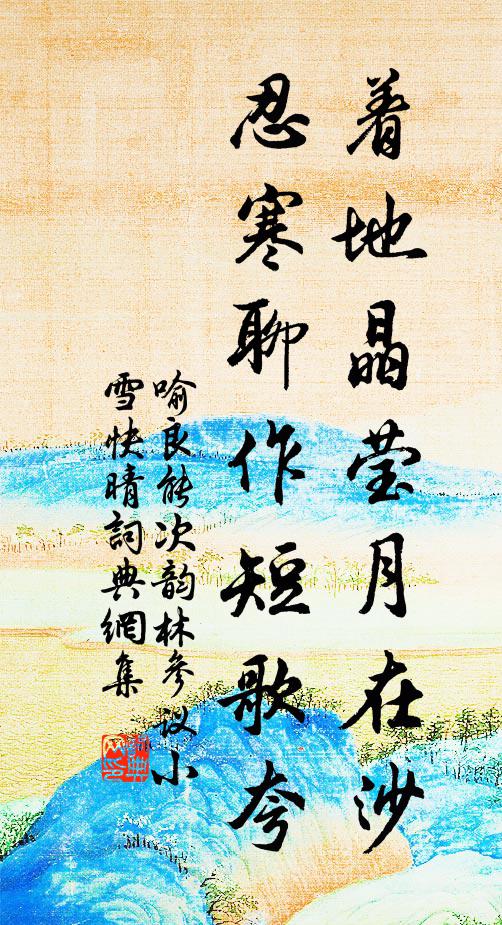 着地晶莹月在沙
忍寒聊作短歌夸
喻良能次韵林参议小
雪快晴詞典網集